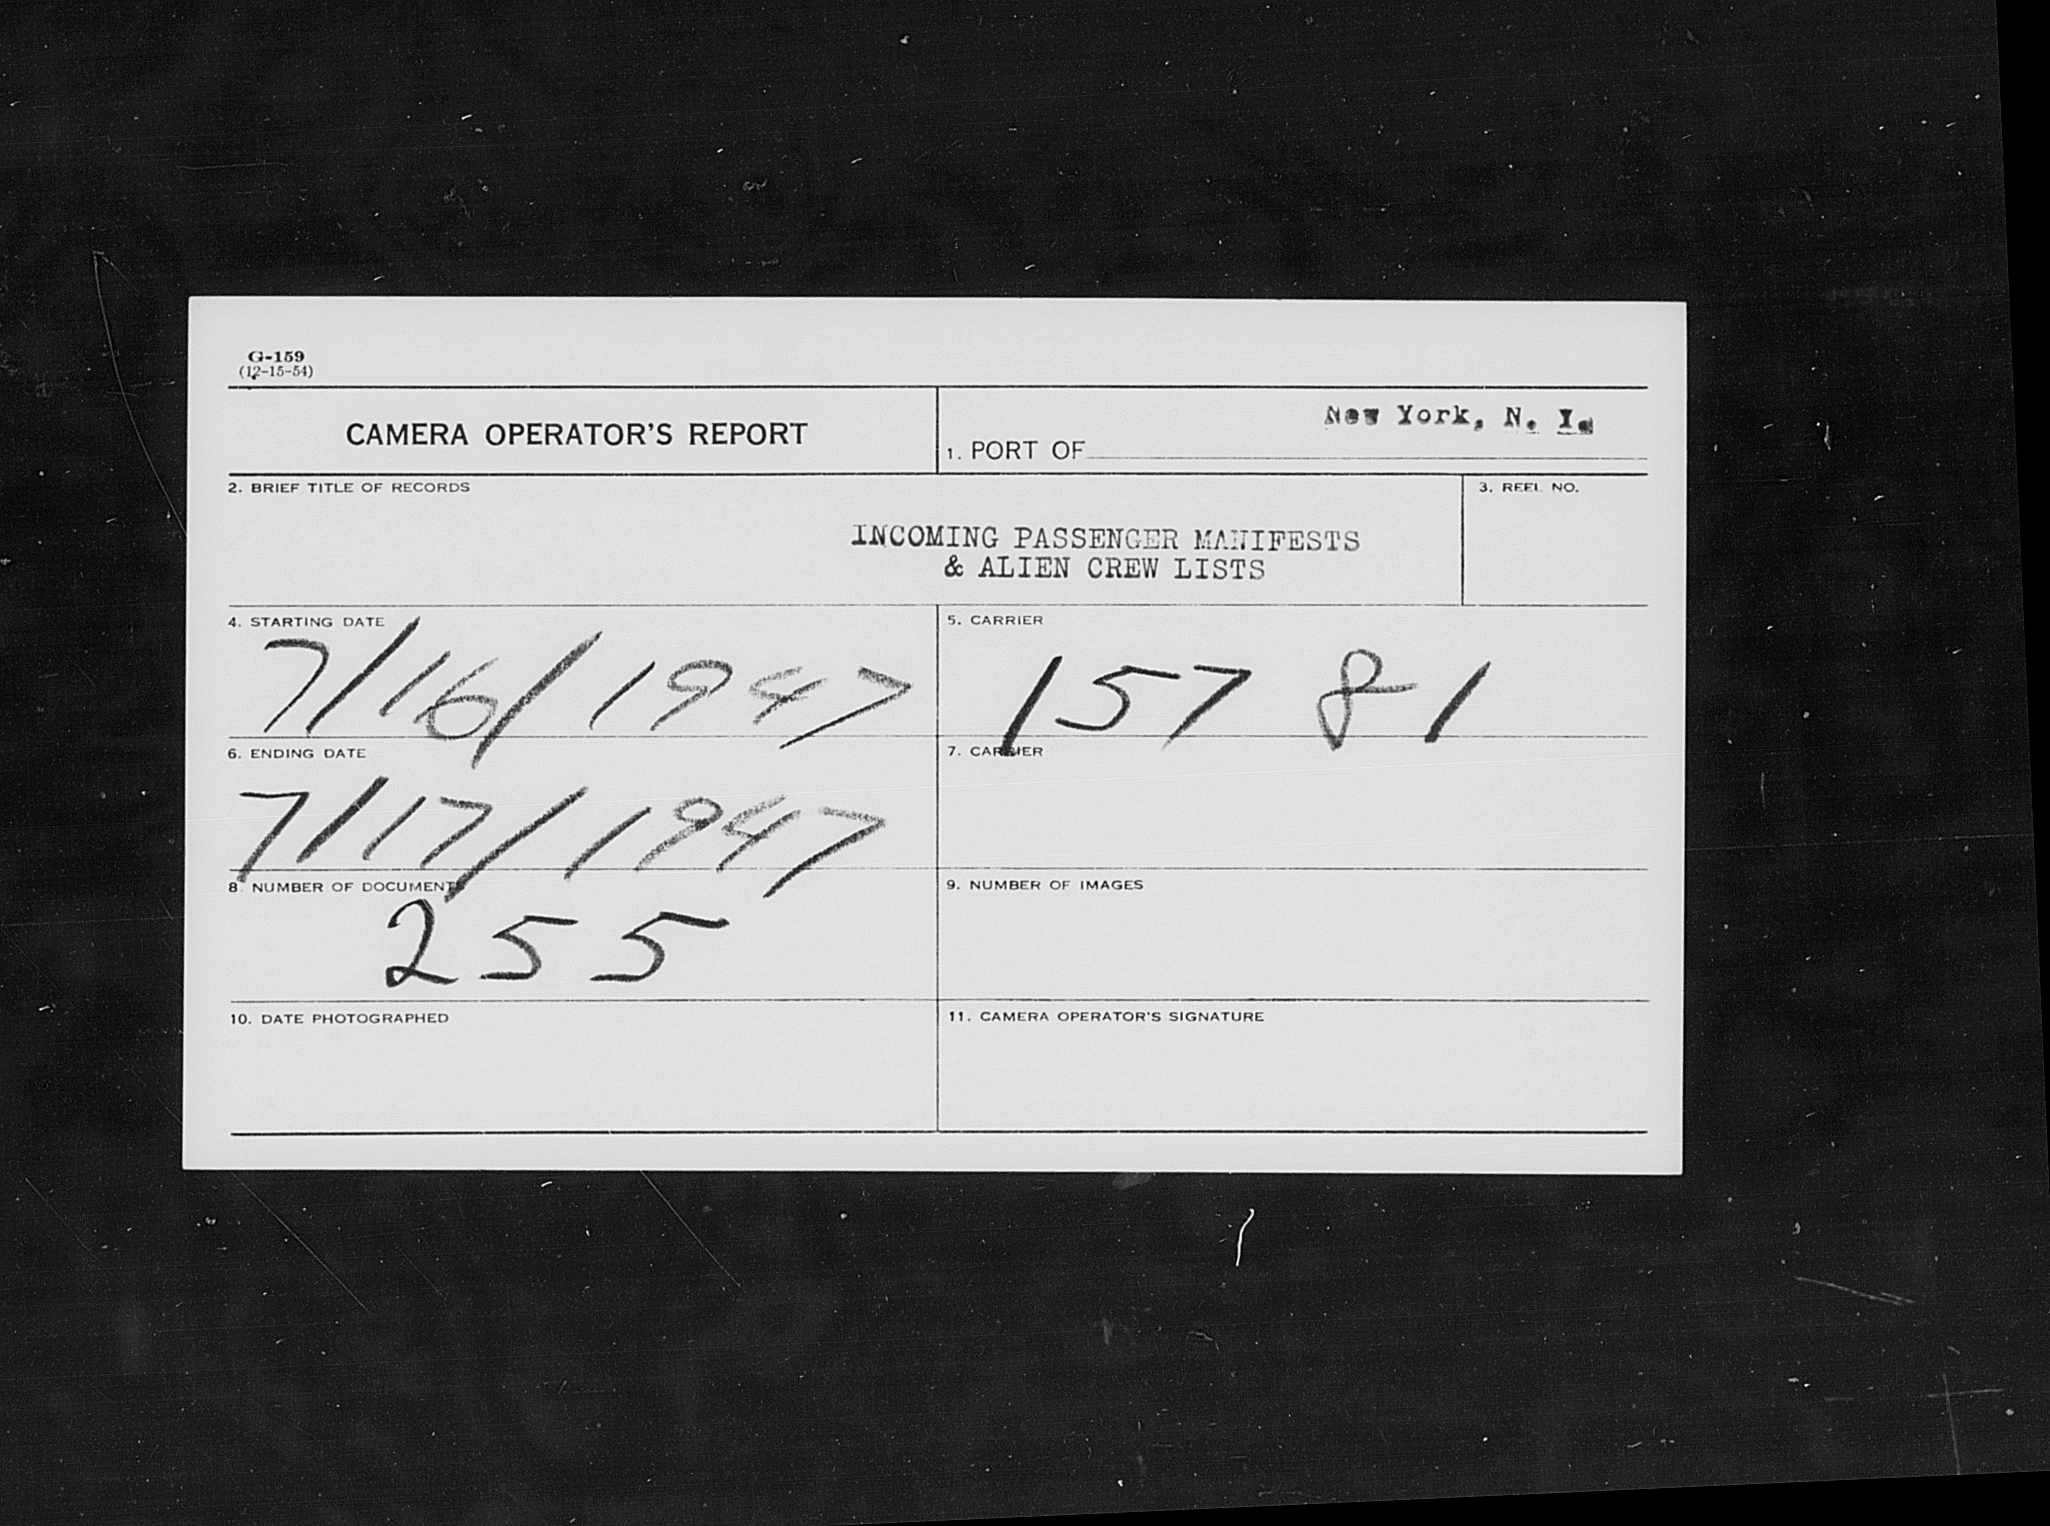 G-159
(12-15-54)
CAMERA OPERATOR'S REPORT
New York, N. Y.
1. PORT OF
2. BRIEF TITLE OF RECORDS
3. REEL NO.
INCOMING PASSENGER MANIFESTS
& ALIEN CREW LISTS
4. STARTING DATE
7/16/1947
5. CARRIER
157 81
6. ENDING DATE
7/17/1947
7. CARRIER
8. NUMBER OF DOCUMENTS
255
9. NUMBER OF IMAGES
10. DATE PHOTOGRAPHED
11. CAMERA OPERATOR'S SIGNATURE